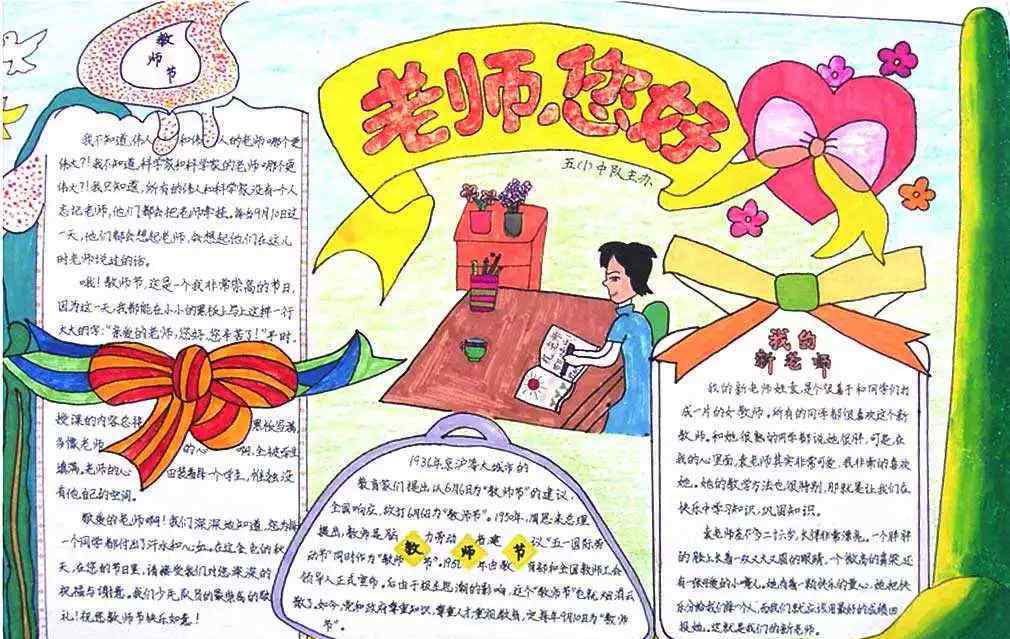 老师,您好
五(1)中队主办
教
师
节
我不知道,伟人 和伟 人的老师哪个更
伟大?!我不知道,科学家和科学家的老师哪个更
伟大?!我只知道,所有的伟人和科学家没有一个人
忘记老师,他们都会把老师牵挂。每当9月10日这
一天,他们都会想起老师,会想起他们在这儿
时老师说过的话。
哦!教师节,这是一个我非常崇高的节日,
因为这一天,我都能在小小的黑板上写上这样一行
大大的字:“亲爱的老师,您好,您辛苦了!”平时,
授课的内容总将 黑板写满,
多像老师 的心 啊,全被学生
填满。老师的心 田装着每一个学生,惟独没
有他自己的空间。
敬爱的老师啊!我们深深地知道,您为每
一个同学都付出了汗水和心血。在这金色的秋
天,在您的节日里,请接受我们对您深深的
祝福与谢意。我们少先队员以最崇高的敬
礼!祝您教师节快乐如意!
1936年京沪等大城市的
教育家们提出以6月6日为“教师节”的建议,
全国响应,故打6月6日为“教师节”。1950年,周恩来总理
提出,教师是脑 力劳动者,建 议“五一国际劳
动节”同时作为“教师 节”。1951 年由教 育部和全国教师工会
领导人正式宣布。后由于极左思潮的影响,这个“教师节”也就烟消云
散了。如今,党和政府尊重知识,尊重人才重视教育,定每年9月10日为“教师
节”。
教 师 节
我的
新老师
我的新老师姓袁,是个很善于和同学们打
成一片的女教师。所有的同学都很喜欢这个新
教师。和她很熟的同学都说她很胖,可是,在
我的心里面,袁老师其实非常可爱,我非常的喜欢
她。她的教学方法也很特别,那就是让我们在
快乐中学习知识,巩固知识。
袁老师差不多二十六岁,长得非常漂亮,一个胖胖
的脸上长着一双大大又圆的眼睛,一个微高的鼻梁,还
有一张可爱的小嘴儿。她有着一颗快乐的童心,她把快
乐分给我们每一个人,而我们就应该用最好的成绩回
报她。这就是我们的新老师。